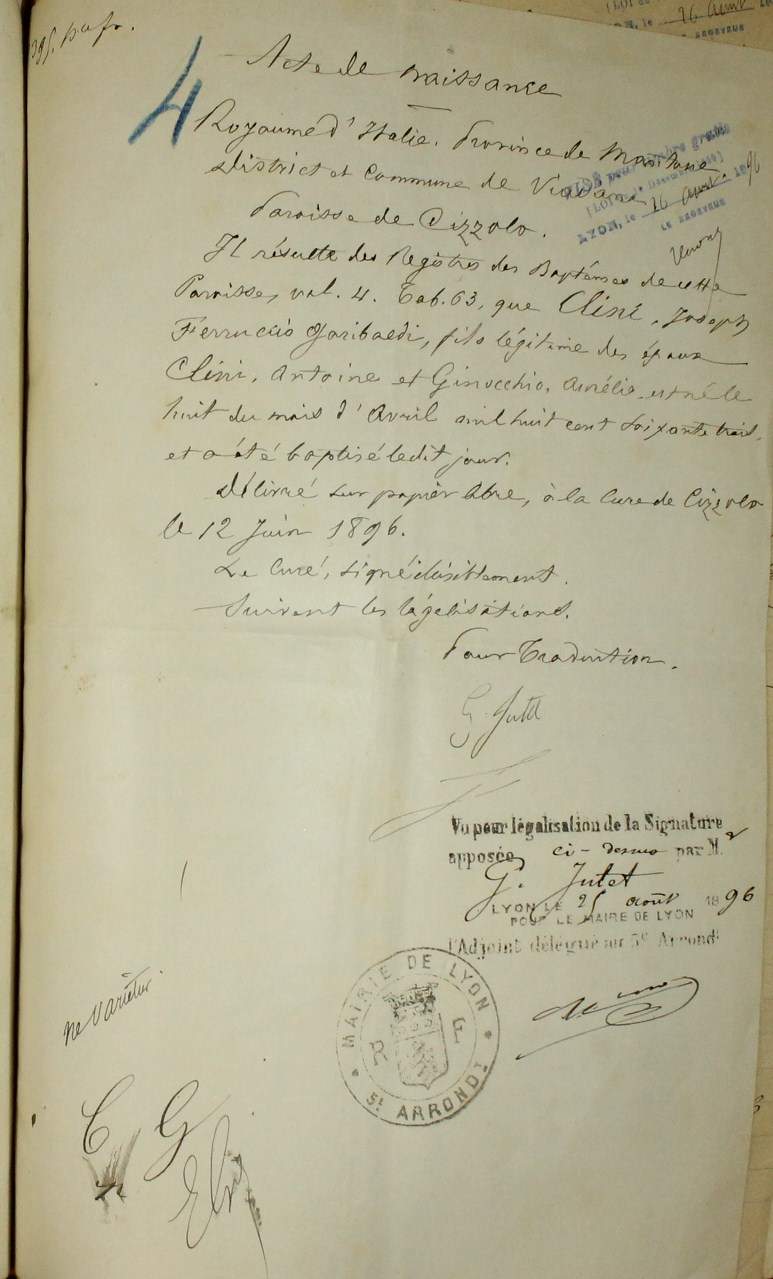 395. p. a fr.
4
Acte de naissance
Royaume d'Italie. Province de Mantoue
District et Commune de Viadana
Paroisse de Cizzolo.
VISÉ pour timbre gratis
LYON, le 26 Aout 1896
LE RECEVEUR
Il résulte des Registres des Baptêmes de cette
Paroisse, vol. 4. Tab. 63, que Clini, Joseph
Ferruccio Garibaldi, fils légitime des époux
Clini, Antoine et Ginocchio, Aurélie est né le
huit du mois d'Avril mil huit cent soixante trois.
et a été baptisé ledit jour.
Délivré sur papier libre, à la Cure de Cizzolo
le 12 Juin 1896.
Le Curé, signé illisiblement.
Suivent les légalisations.
Pour Traduction.
G. Jutet
Vu pour légalisation de la Signature
apposée ci-dessus par M.r
G. Jutet
LYON LE 25 août 1896
POUR LE MAIRE DE LYON
l'Adjoint délégué au 5e Arrondt
MAIRIE DE LYON
R F
5t. ARRONDt
ne varietur
C G